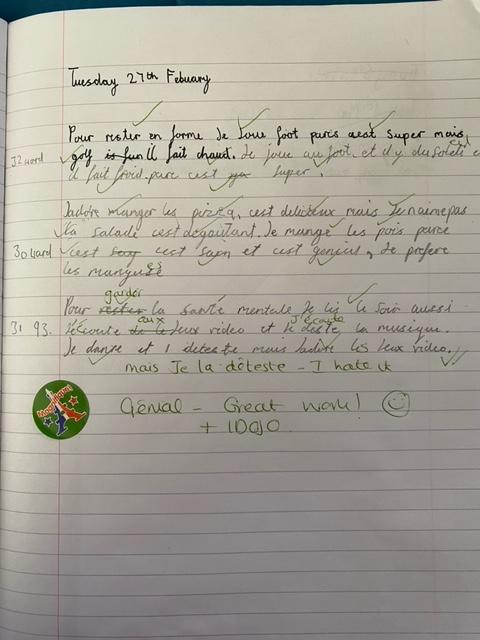 Tuesday 27th Febuary
Pour rester en forme Je Joue foot parcs cest Super mais
golf is fun Il fait chaud. Je joue au foot, et il y du Soleil e
32 word il fait froid. parc cest super.
Jadore manger les pizza, cest delicieux mais Je naime pas
la Salade cest degoutant. Je mange les pois parce
30 word cest cest sain et cest genius, Je prefere
les mangue
garder
Pour rester la santé mentale Je lis le Soir aussi
aux J'écoute
31 93. l'écoute de le Jeux video et le déste la musique.
Je danse et I déteste mais Jadore les Jeux video.
mais Je la déteste - I hate it
Génial - Great work!
+ 1DOJO